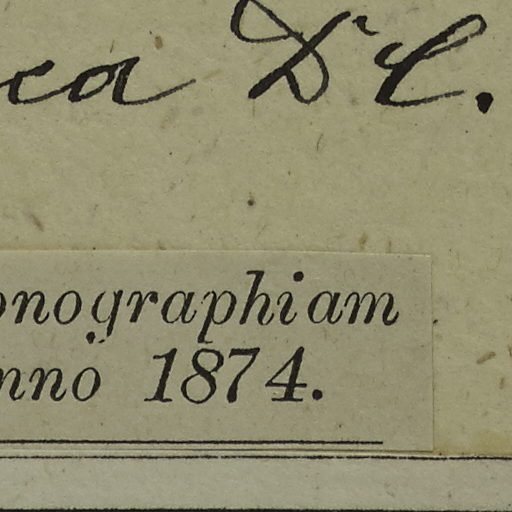 ea D'C.
onographiam
nno 1874.